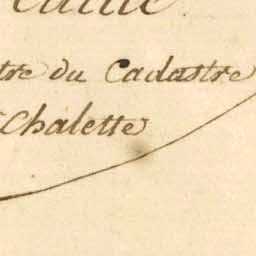 tre du Cadastre
Chalette